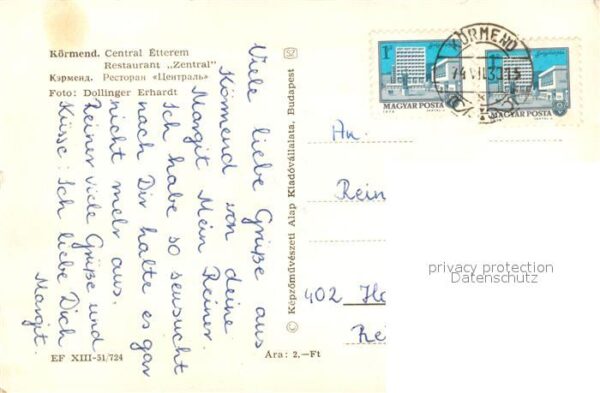 Körmend. Central Étterem
Restaurant „Zentral"
Кэрменд. Ресторан «Централь»
Foto: Dollinger Erhardt
Viele liebe Grüße aus
Körmend von deine
Margit. Mein Reiner.
Ich habe so seusucht
nach Dir halte es gar
nicht mehr aus.
Reiner viele Grüße und
Küsse: Ich liebe Dich
Margit.
EF XIII-51/724
Ára: 2,-Ft
© Képzőművészeti Alap Kiadóvállalata, Budapest
1 Ft
MAGYAR POSTA
1 Ft
MAGYAR POSTA
KÖRMEND
An.
Rein
402
privacy protection
Datenschutz